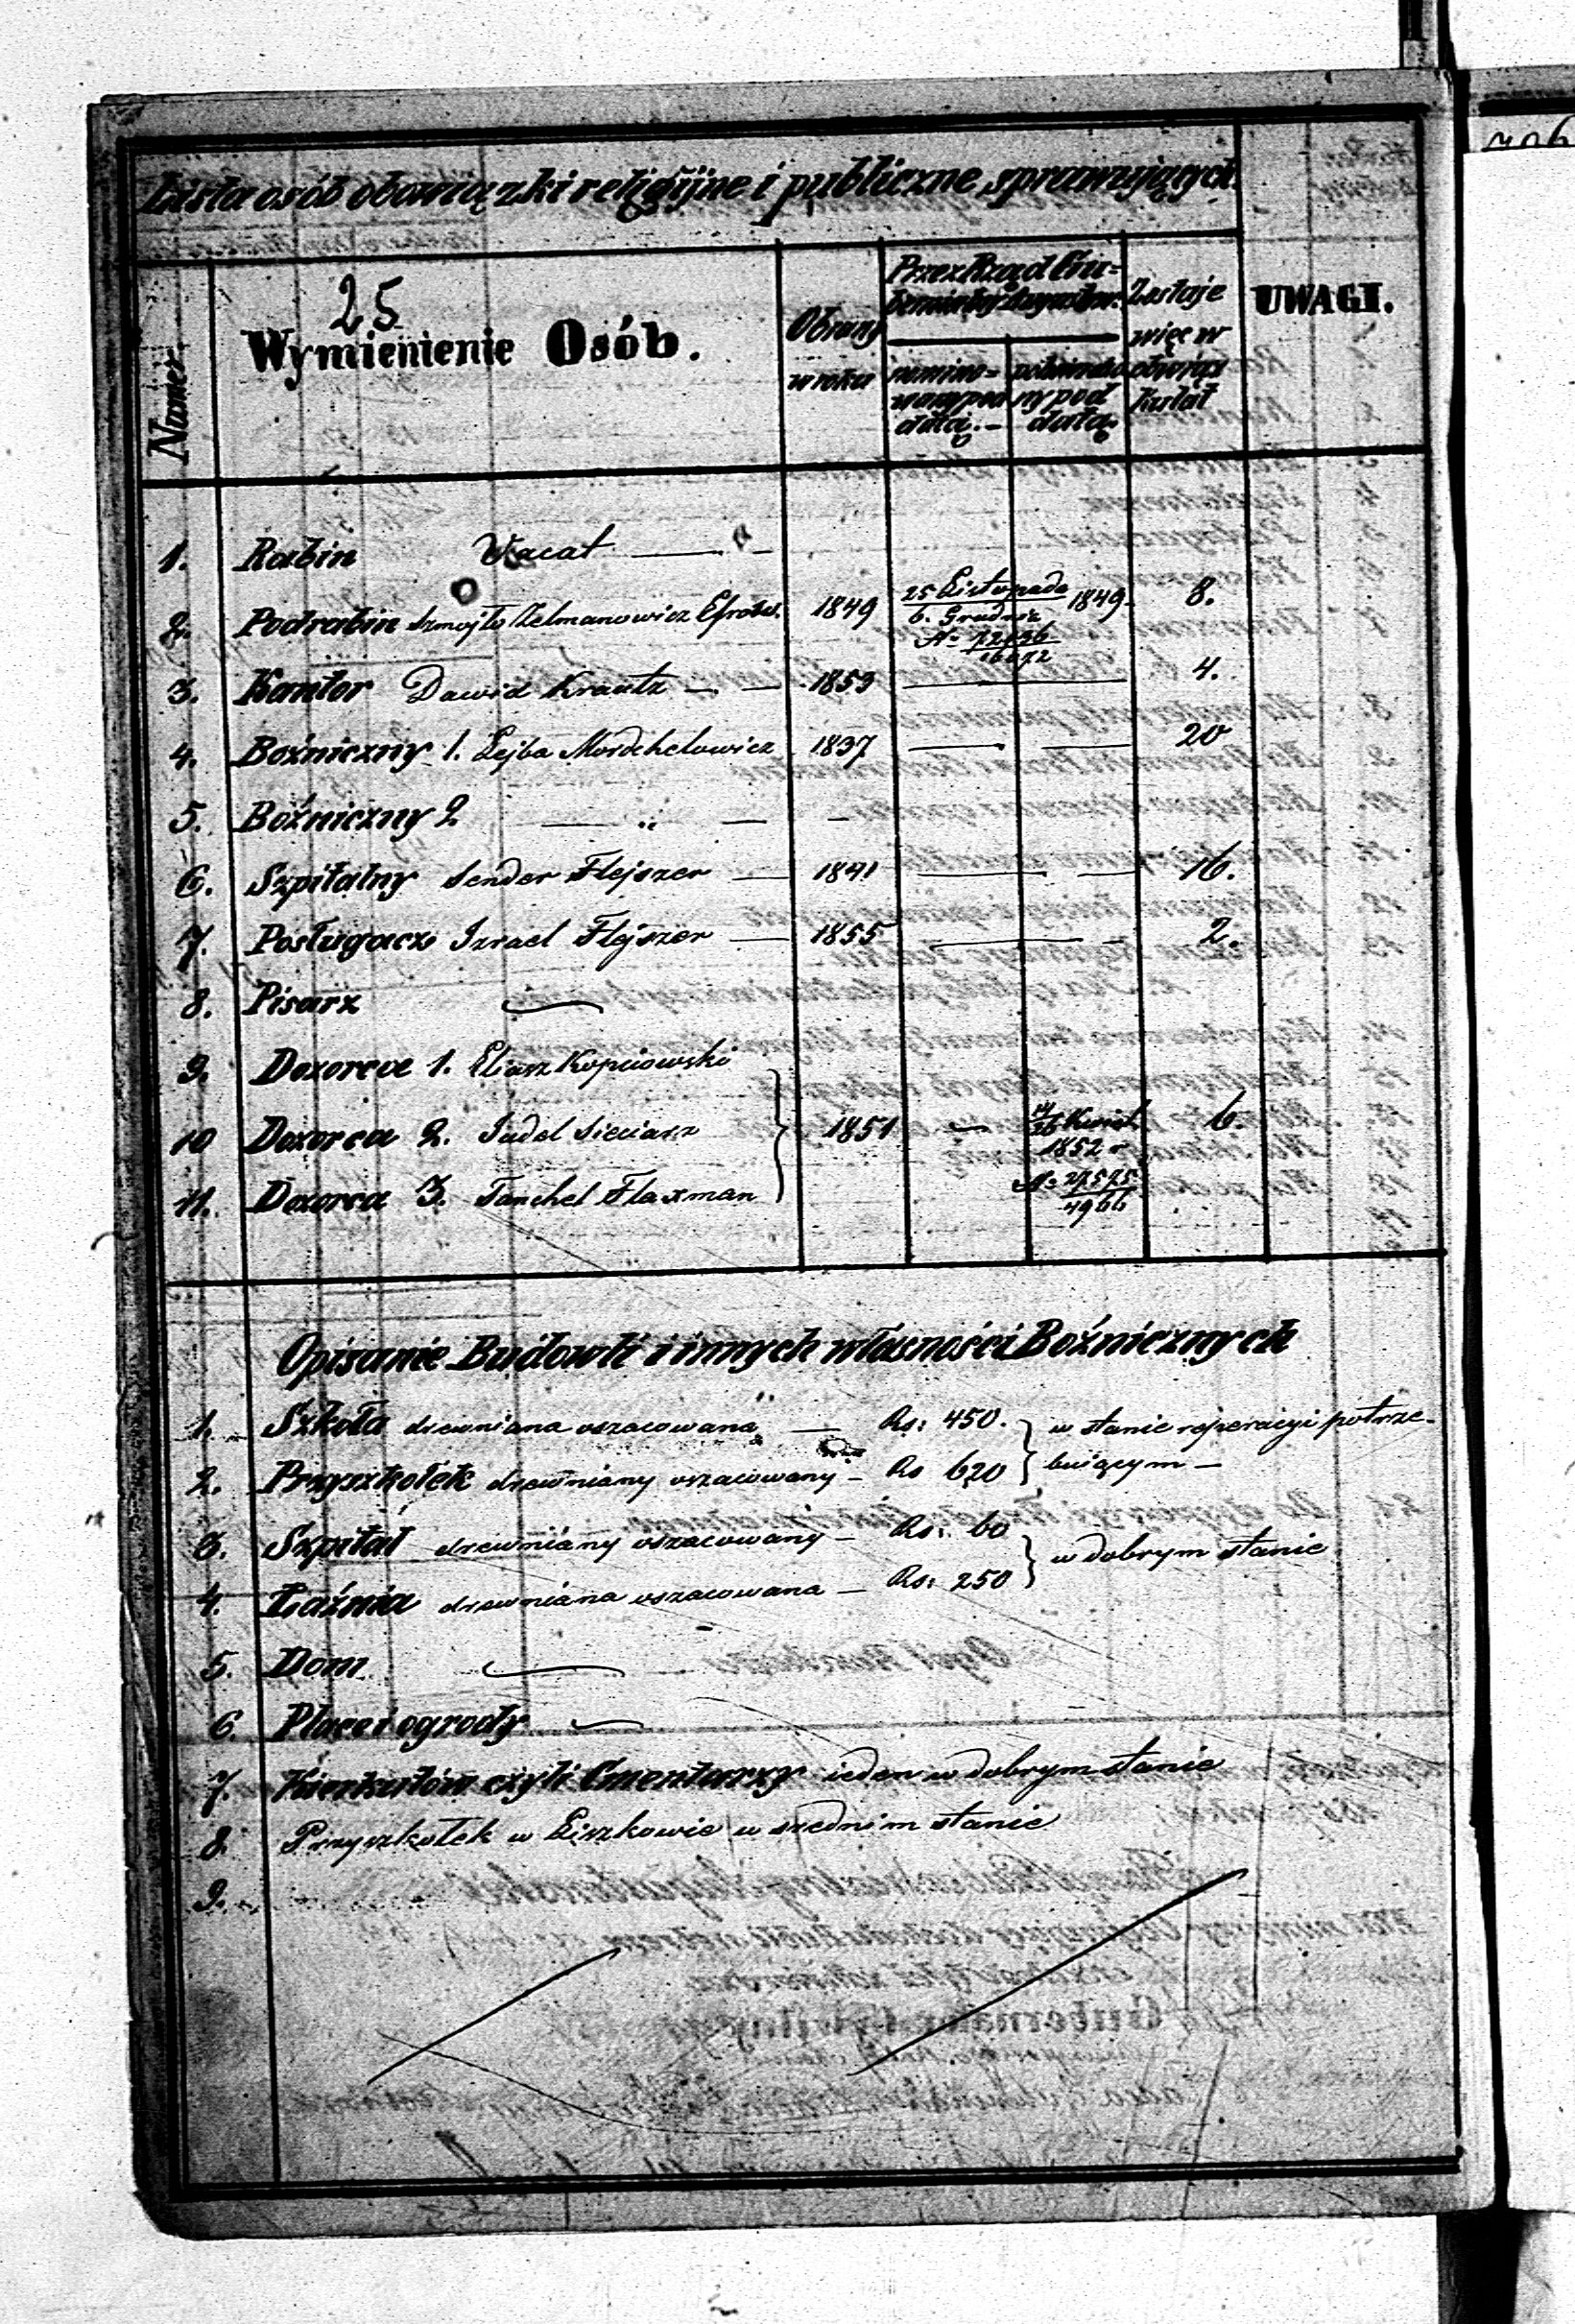 Lista osób obowiązki religijne i publiczne sprawujących
25
Numer
Wymienienie Osób.
Obrany w roku
Przez Rząd Gu-
nomino-
wany pod
datą.
ny pod
datą.
Zostaje
więc w
obowiąz
ku lat
UWAGI.
1. Rabin Vacat
2. Podrabin Szmojło Zelmanowicz Efrosw. 1849 25 Listopada / 6. Grudnia 1849 8.
16072
3. Kantor Dawid Krautz 1853 4.
4. Bożniczny 1. Lejba Mordchelowicz 1837 20
5. Bożniczny 2 „
6. Szpitalny Sender Flejszer 1841 16.
7. Posługacz Izrael Flejszer 1855 2.
8. Pisarz
9. Dozorca 1. Eliasz Kopciowski
10 Dozorca 2. Judel Sieciarz 1851 14/26 Kwiet. 6.
1852 r
11. Dozorca 3. Tanchel Flaxman N: 27575
4966
Opisanie Budowli i innych własności Bożnicznych
1. Szkoła drewniana oszacowana — Rs: 450. w stanie reperacyi potrze-
2. Przyszkołek drewniany oszacowany — Rs 620 buiącym —
3. Szpital drewniany oszacowany — Rs: 60
w dobrym stanie
4. Łaźnia drewniana oszacowana — Rs: 250
5. Dom
6. Place i ogrody
7. Kierkutów czyli Cmentarzy ieden w dobrym stanie
8. Przyszkołek w Liszkowie w srednim stanie
9.